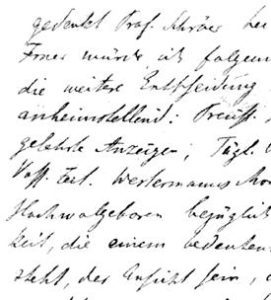 gedenkt Prof. Schröer
Ferner würde ich folgen
die weitere Entscheidung
anheimstellend: Preuß.
gelehrte Anzeigen, Tägl.
Voss. Zeit. Westermanns Mo
Hochwolgeboren bezüglic
keit, die einem bedeuten
steht, der Ansicht sein,